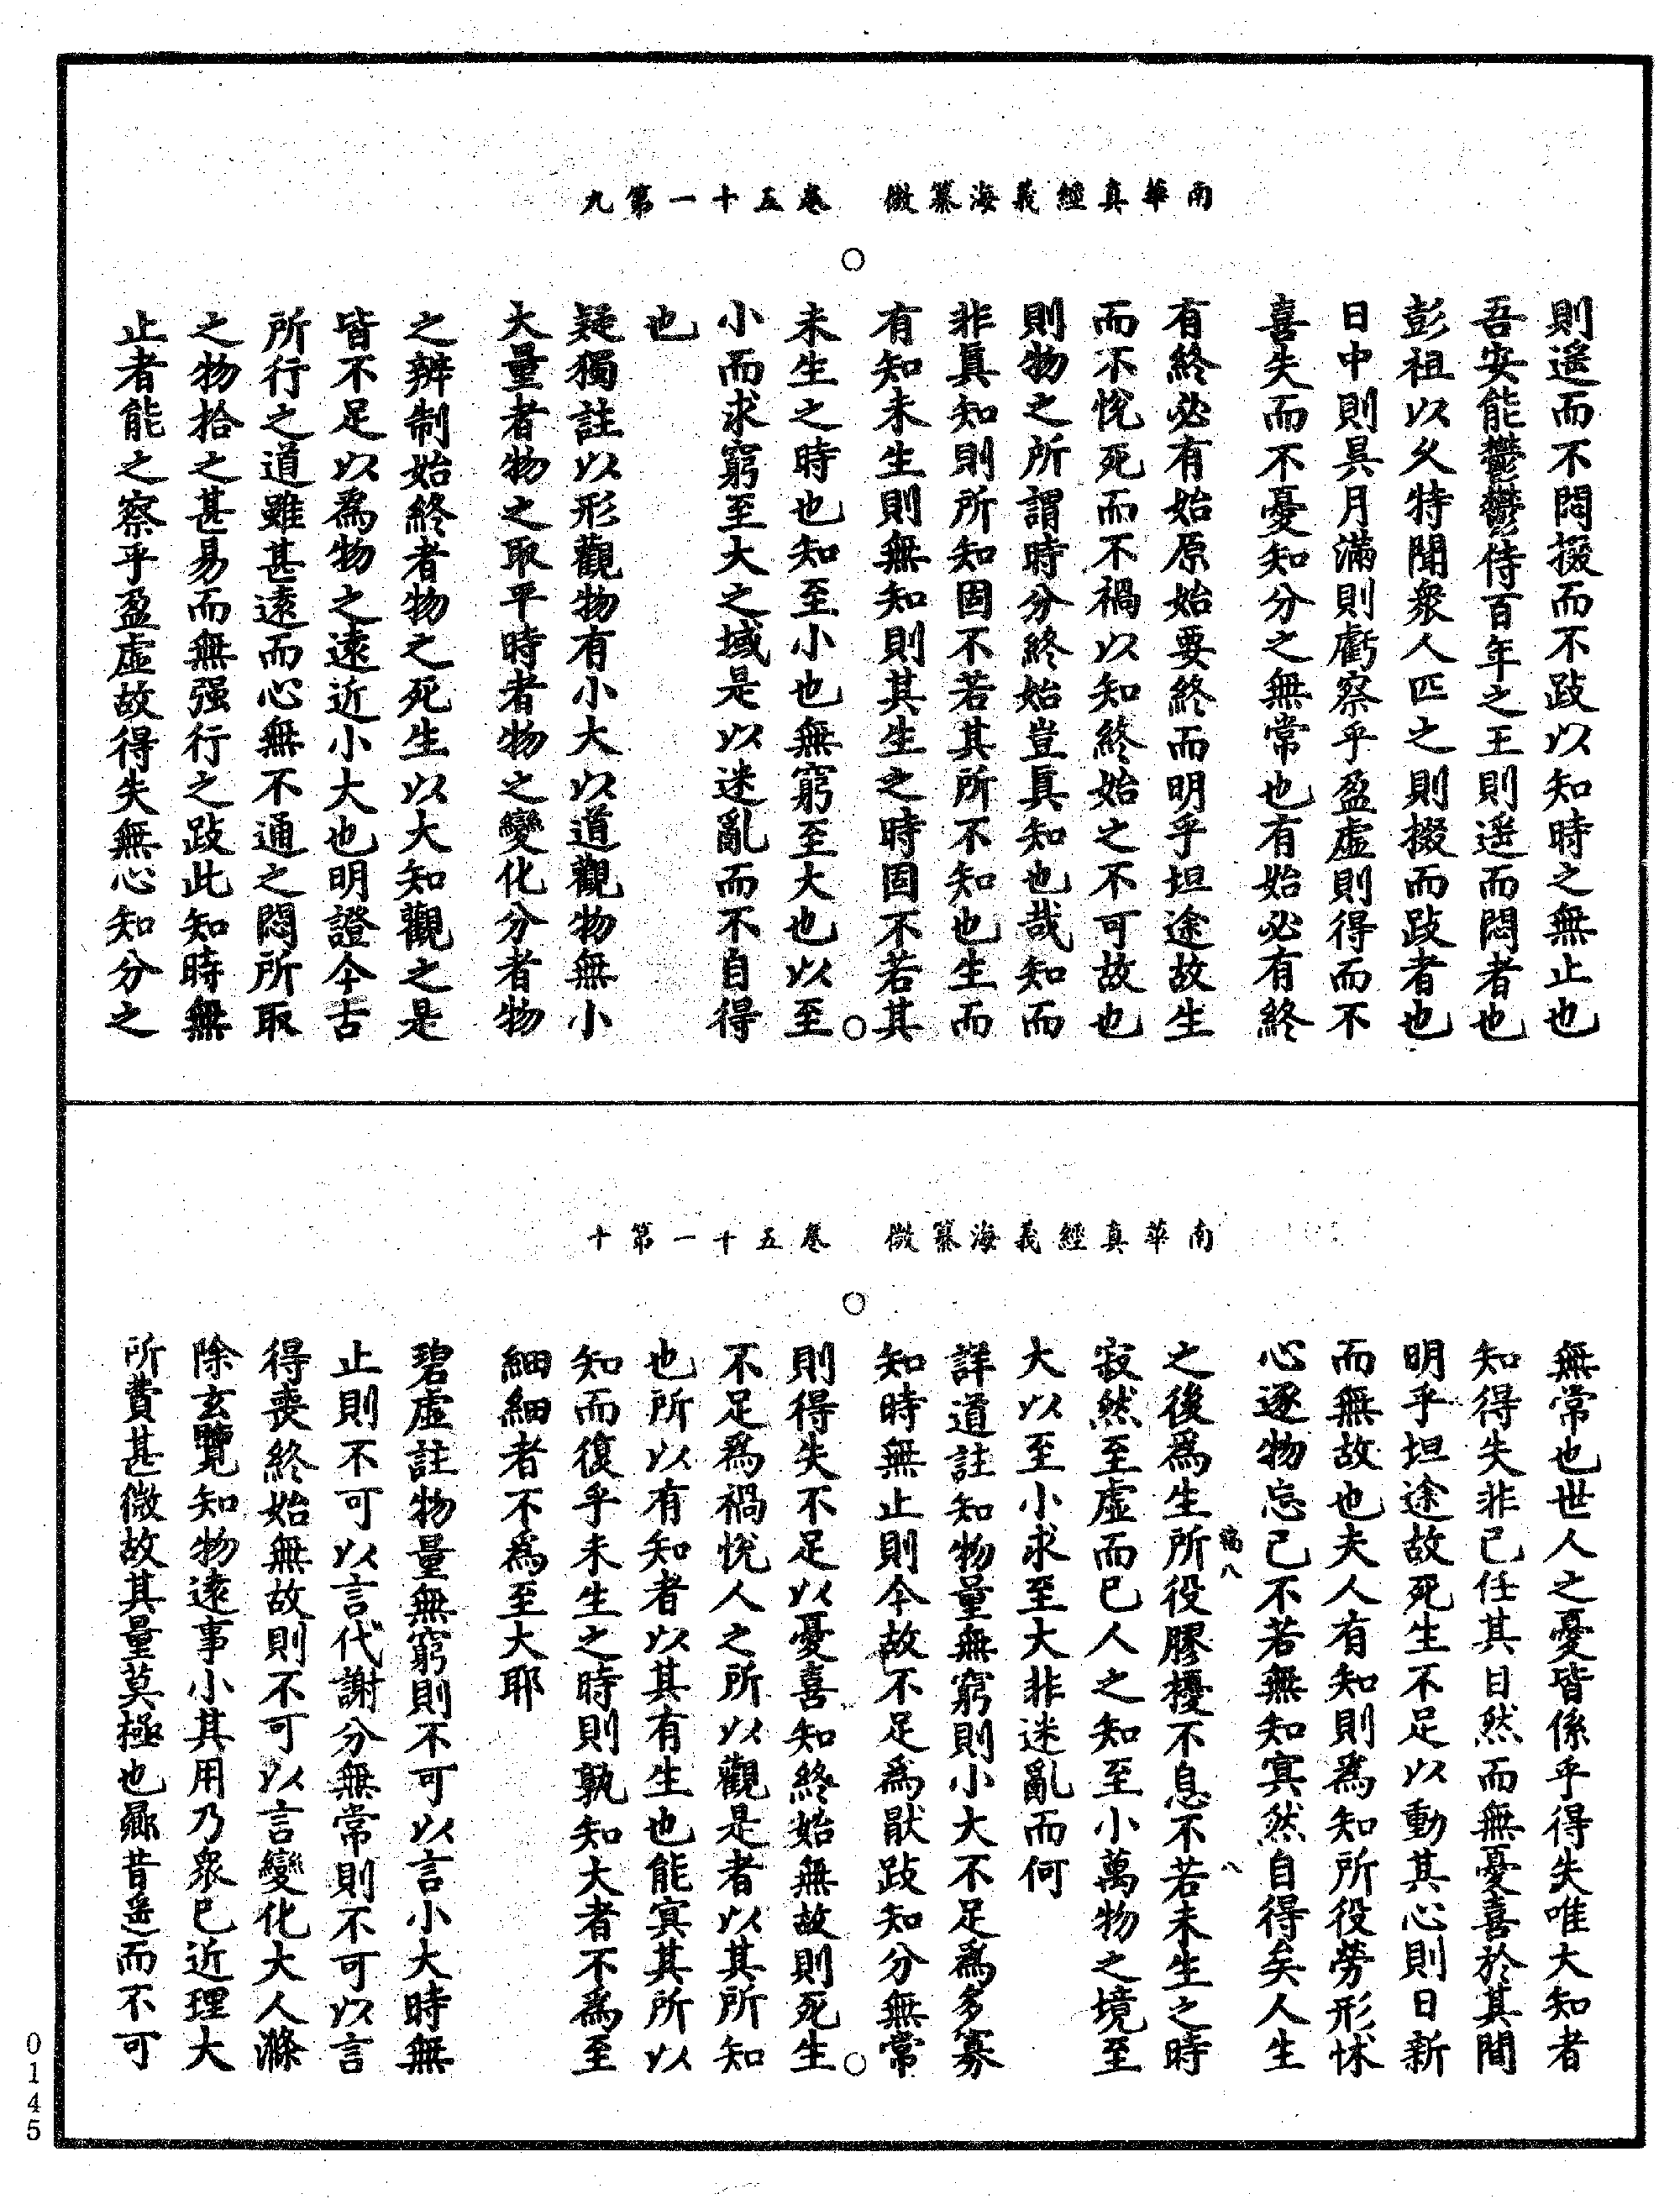 南華真經義海纂微　卷五十一第九
則遥而不悶掇而不跂以知時之無止也
吾安能鬱鬱侍百年之王則遥而悶者也
彭祖以久特聞衆人匹之則掇而跂者也
日中則昃月滿則虧察乎盈虚則得而不
喜失而不憂知分之無常也有始必有終
有終必有始原始要終而明乎坦途故生
而不悅死而不禍以知終始之不可故也
則物之所謂時分終始豈真知也哉知而
非真知則所知固不若其所不知也生而
有知未生則無知則其生之時固不若其
未生之時也知至小也無窮至大也以至
小而求窮至大之域是以迷亂而不自得
也
疑獨註以形觀物有小大以道觀物無小
大量者物之取平時者物之變化分者物
之辨制始終者物之死生以大知觀之是
皆不足以爲物之遠近小大也明證今古
所行之道雖甚遠而心無不通之悶所取
之物拾之甚易而無强行之跂此知時無
止者能之察乎盈虚故得失無心知分之
南華真經義海纂微　卷五十一第十
無常也世人之憂皆係乎得失唯大知者
知得失非己任其日然而無憂喜於其間
明乎坦途故死生不足以動其心則日新
而無故也夫人有知則爲知所役勞形怵
心逐物忘己不若無知冥然自得矣人生
之後爲生所役膠擾不息不若未生之時
寂然至虚而已人之知至小萬物之境至
大以至小求至大非迷亂而何
詳道註知物量無窮則小大不足爲多寡
知時無止則今故不足爲厭跂知分無常
則得失不足以憂喜知終始無故則死生
不足爲禍悅人之所以觀是者以其所知
也所以有知者以其有生也能冥其所以
知而復乎未生之時則孰知大者不爲至
細細者不爲至大耶
碧虚註物量無窮則不可以言小大時無
止則不可以言代謝分無常則不可以言
得喪終始無故則不可以言變化大人滌
除玄覽知物遠事小其用乃衆已近理大
所費甚微故其量莫極也曏昔遥而不可
0145